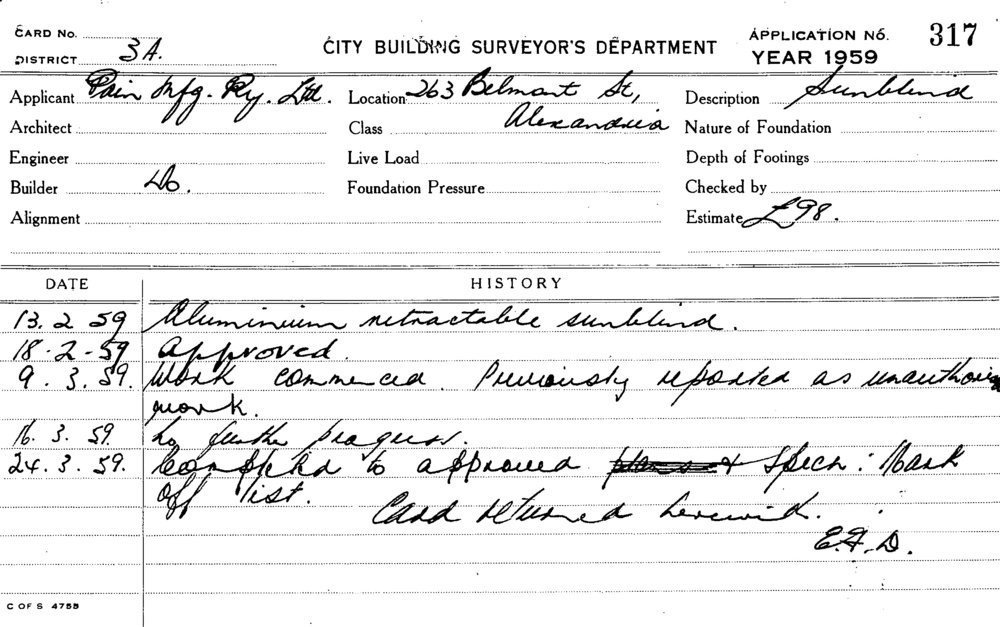 CARD No.
DISTRICT 3A.
CITY BUILDING SURVEYOR'S DEPARTMENT
APPLICATION No. 317
YEAR 1959
Applicant Pain Mfg. Py. Ltd. Location 263 Belmont St, Description Sunblind
Architect Class Alexandria Nature of Foundation
Engineer Live Load Depth of Footings
Builder Do. Foundation Pressure Checked by
Alignment Estimate £98.
DATE HISTORY
13. 2 59 Aluminium retractable sunblind.
18-2-59 Approved.
9. 3. 59. Work commenced. Previously reported as unauthorised
work.
16. 3. 59. No further progress.
24. 3. 59. Completed to approved plans & Specn: Mark
off list.
Card returned herewith.
E.F.D.
C OF S 4755